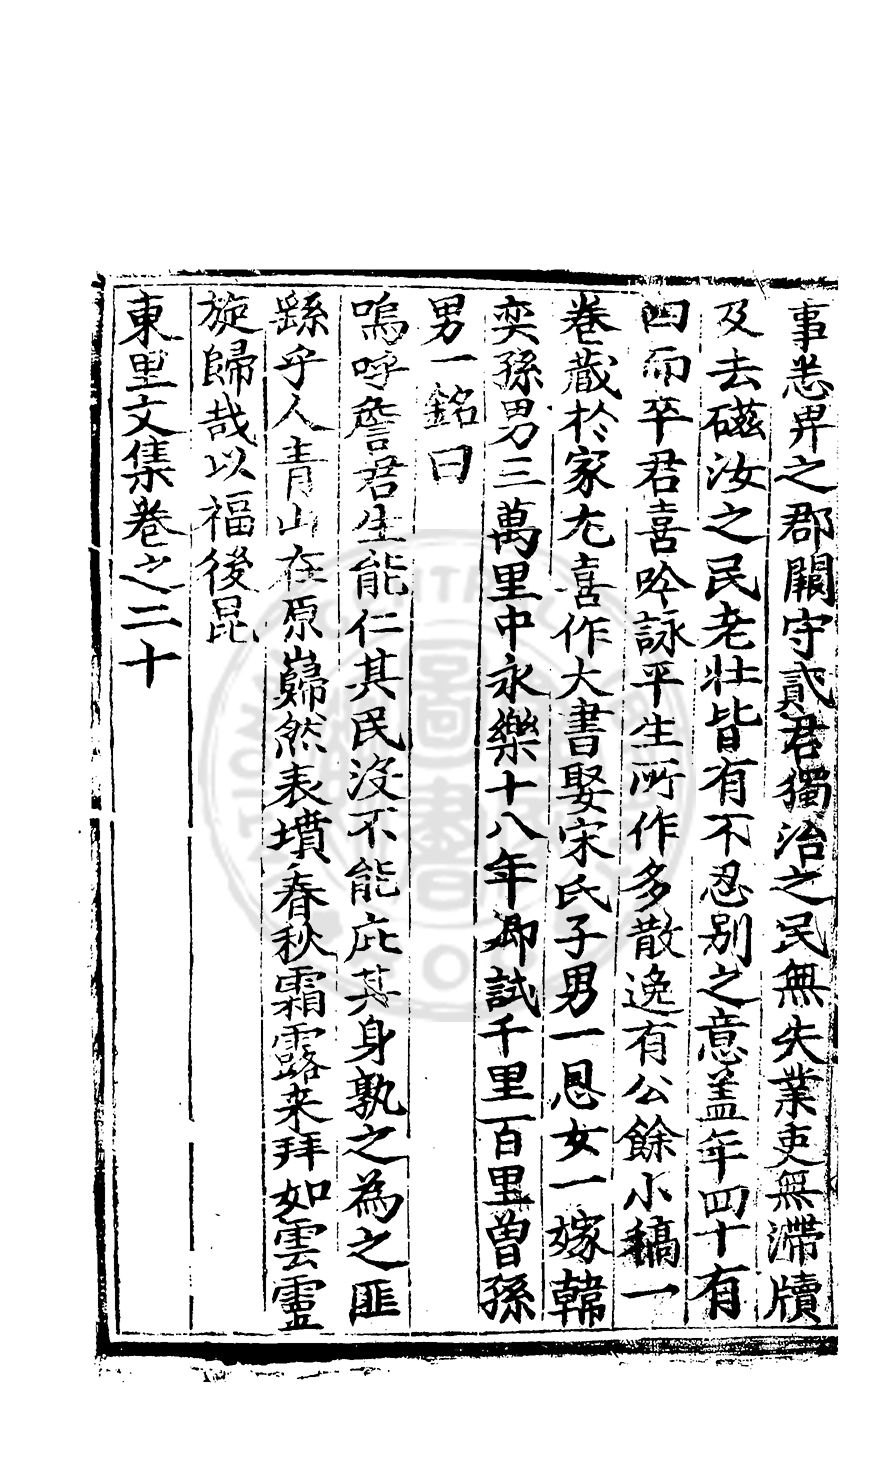 事悉畀之郡闕守貳君獨治之民無失業吏無滯牘
及去磁汝之民老壯皆有不忍別之意盖年四十有
四而卒君喜吟詠平生所作多散逸有公餘小稿一
卷藏於家尤喜作大書娶宋氏子男一恩女一嫁韓
奕孫男三萬里中永樂十八年鄉試千里百里曾孫
男一銘曰
嗚呼詹君生能仁其民沒不能庇其身孰之為之匪
繇乎人青山在原巋然表墳春秋霜露来拜如雲靈
旋歸哉以福後昆
東里文集卷之二十